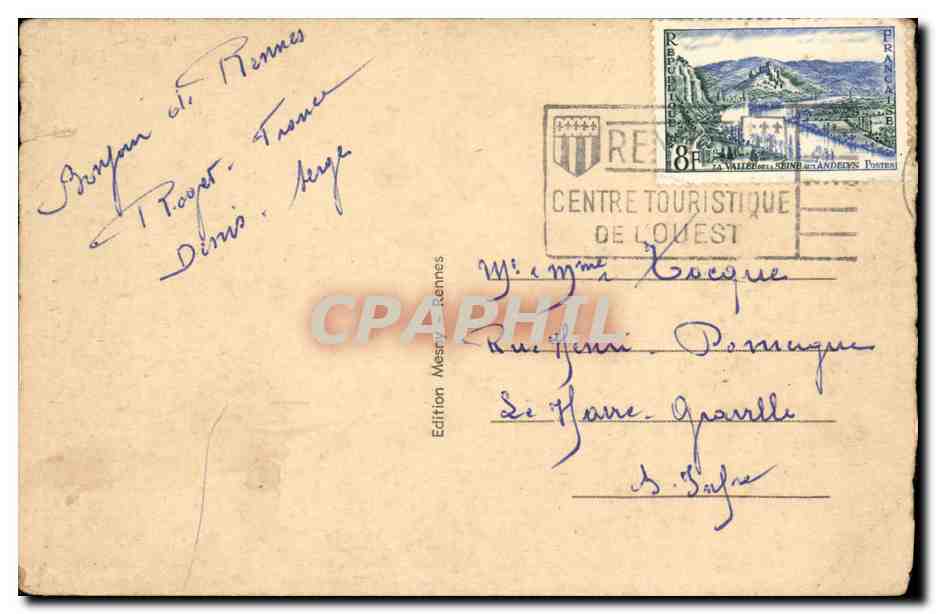 Bonjour de Rennes
Roger - France
Denis - Serge
REPUBLIQUE FRANÇAISE
8F
LA VALLÉE DE LA SEINE AUX ANDELYS POSTES
CENTRE TOURISTIQUE
DE L'OUEST
Mr e Mme
Rue Henri -
Le Havre - Graville
S. Infre
Edition Mesny - Rennes
CPAPHIL